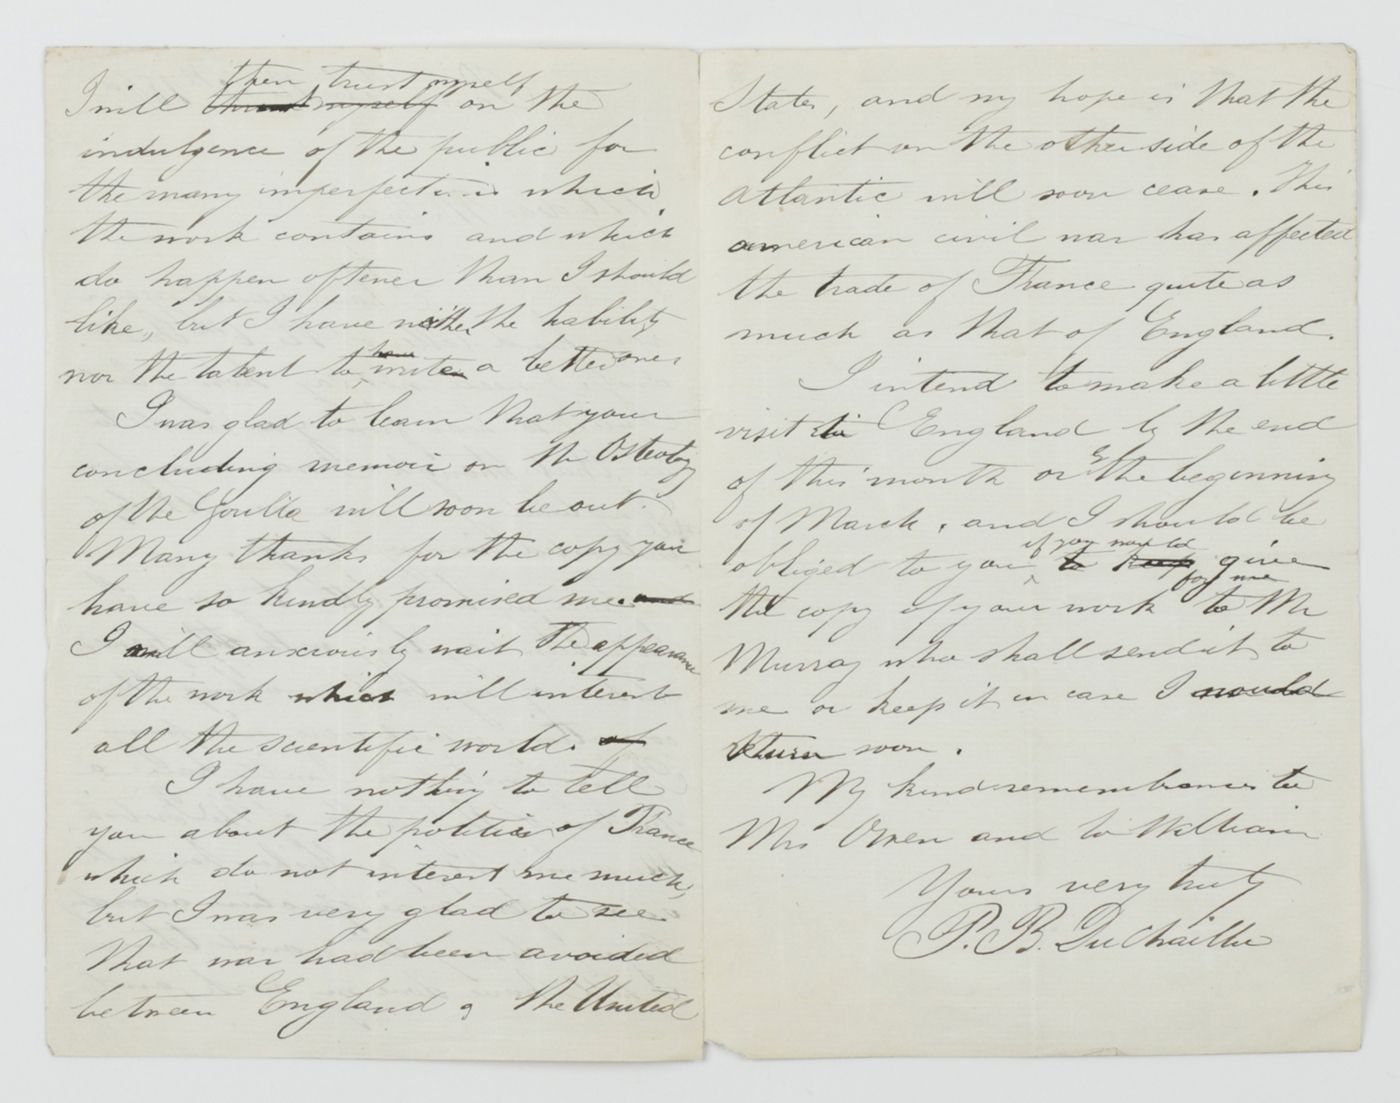 then trust myself
I will trust myself on the
indulgence of the public for
the many imperfections which
the work contains and which
do happen oftener than I should
like, but I have neither the hability
have
nor the talent to writen a better ones
I was glad to learn that your
concluding memoir on the Osteology
of the Gorilla will soon be out.
Many thanks for the copy you
have so kindly promised me. and
I will anxiously wait the appearance
of the work which will interest
all the scientific world. of
I have nothing to tell
you about the politics of France
which do not interest me much,
but I was very glad to see
that war had been avoided
between England & the United
States, and my hope is that the
conflict on the other side of the
Atlantic will soon cease. This
american civil war has affected
the trade of France quite as
much as that of England.
I intend to make a little
visit to England by the end
of this month or the beginning
of March, and I should be
if you would
obliged to you to keep give
for me
the copy of your work to Mr
Murray who shall send it to
me or keep it in case I would
return soon.
My kind remembrances to
Mrs Owen and to William
Yours very truly
P. B. DuChaillu